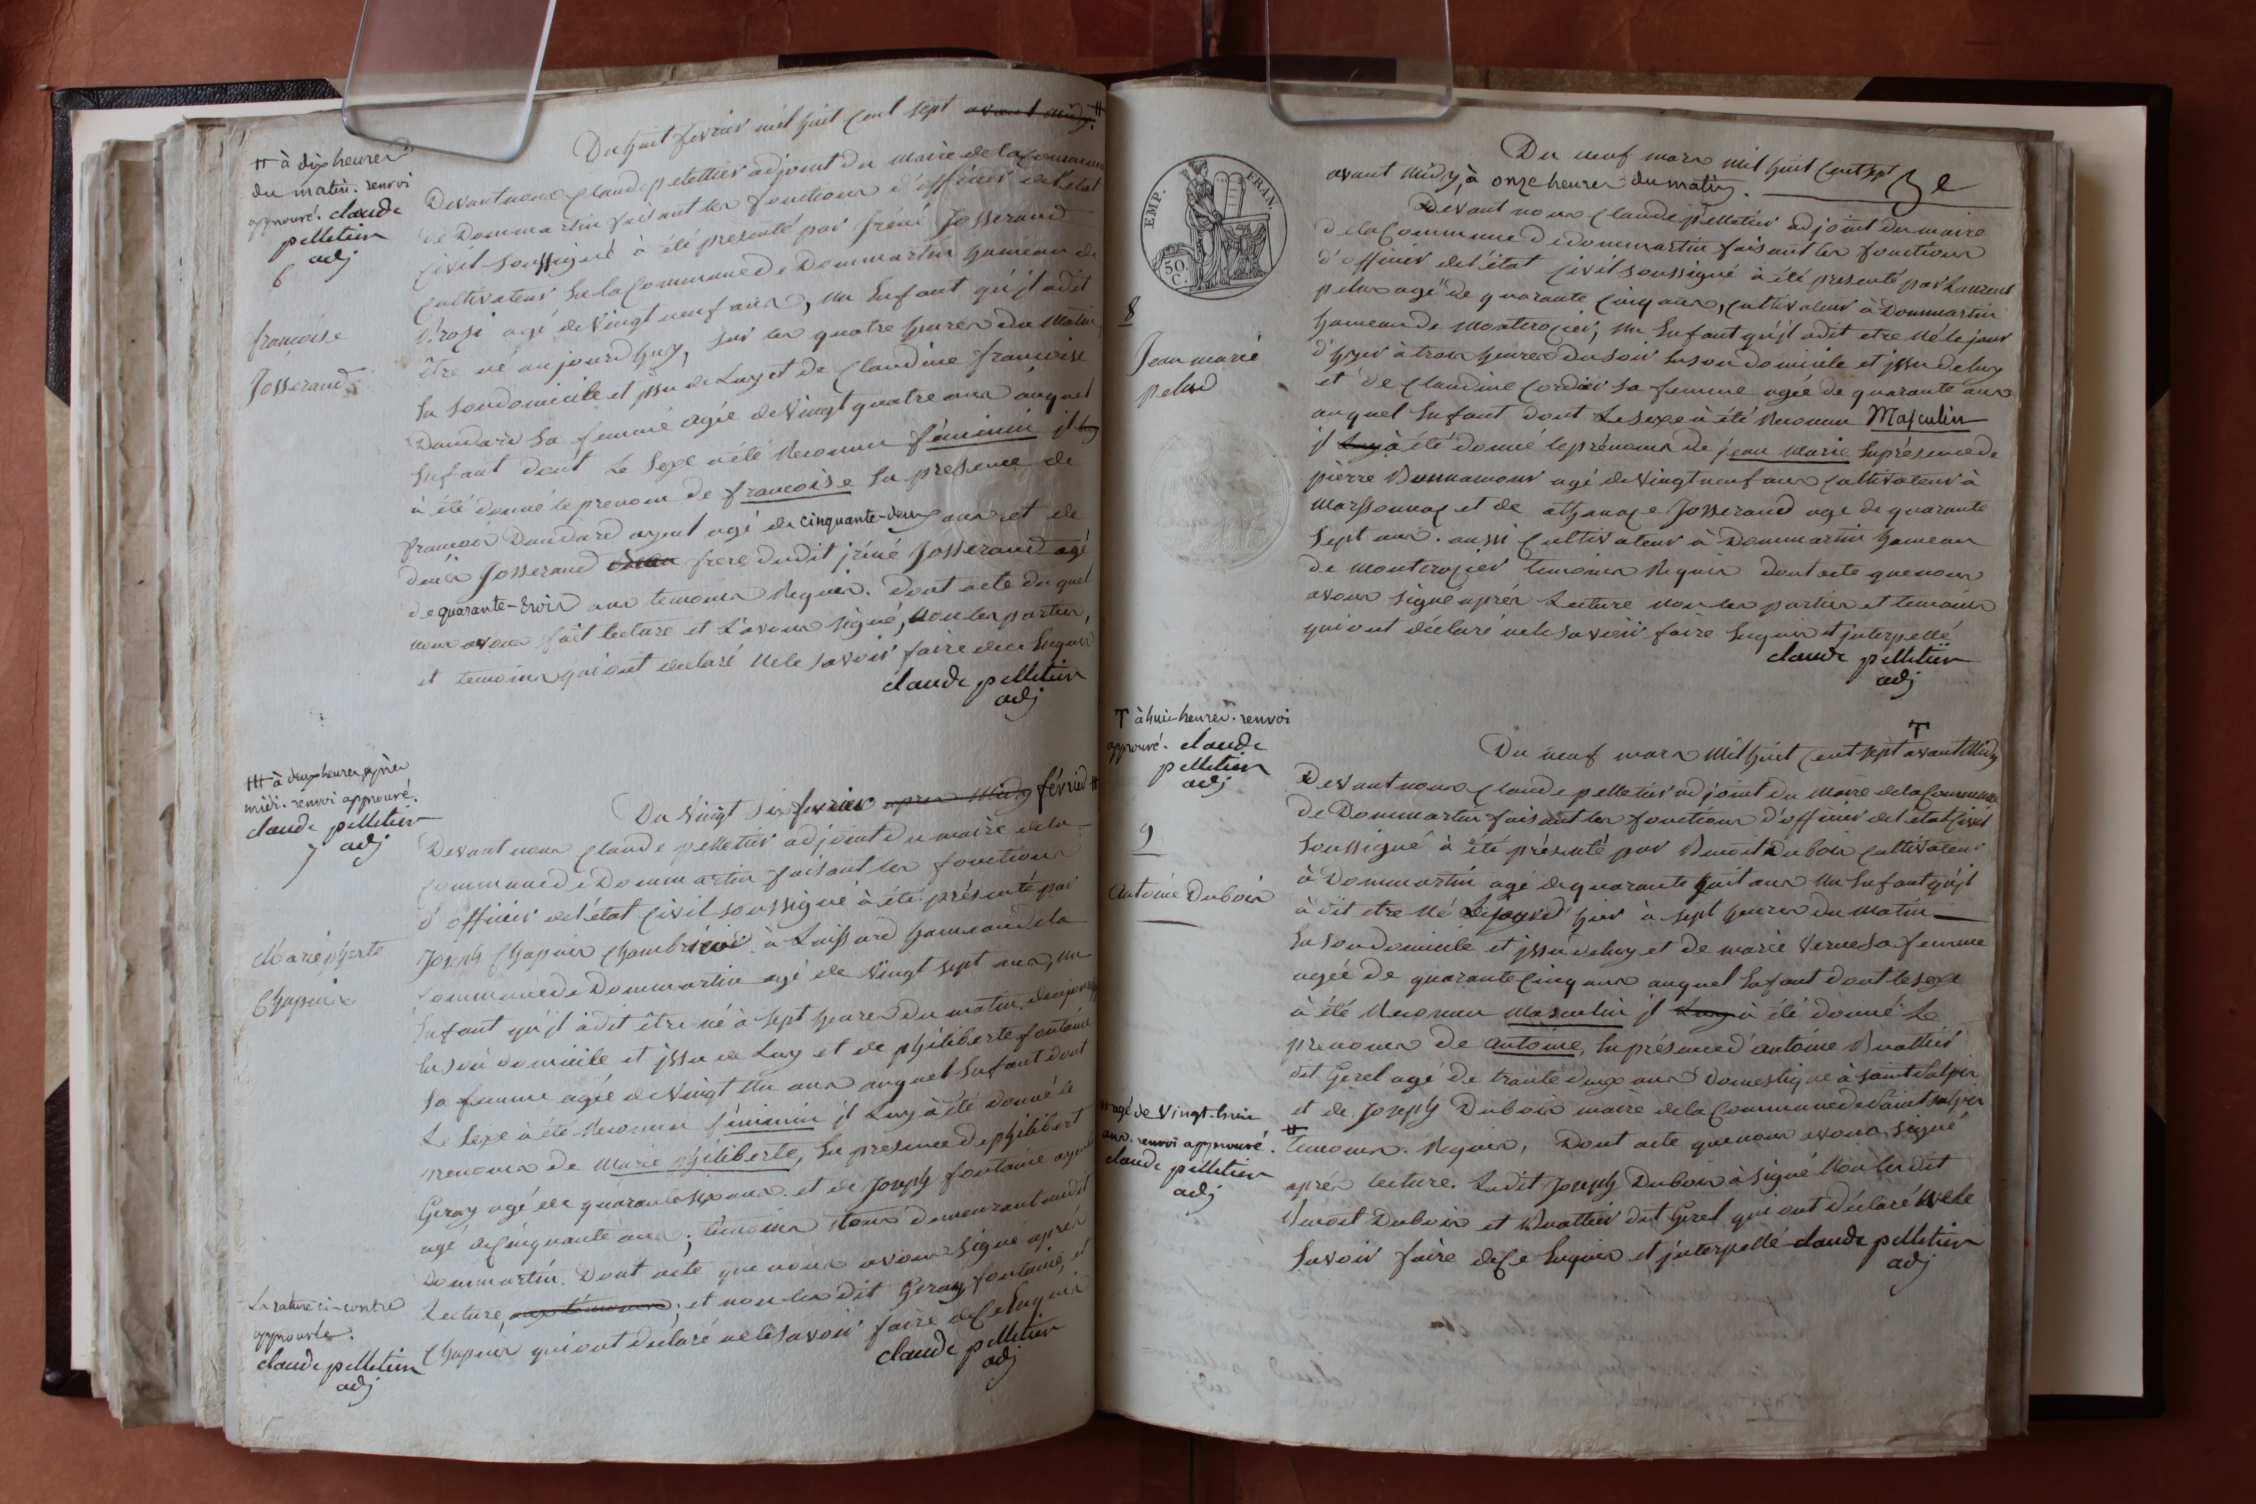 Du huit fevrier mil huit cent sept avant midy #
# à dix heures
du matin. renvoi
approuvé. claude
pelletier
adj
6
françoise
Josserand
Devant nous Claude pelettier adjoint du maire de la Commune
de Dommartin faisant les fonctions d'officier de l'état
civil soussigné à été presenté par Josserand
cultivateur en la Commune de Dommartin hameau de
agé de vingt neuf ans, un Enfant qu'il a dit
être né aujourdhuy, sur les quatre heures du matin
En son domicile et jssu de Luy et de Claudine françoise
Daudard sa femme agée de vingt quatre ans auquel
Enfant dont Le Sexe a été Reconnu féminin jl luy
à été donné le prenom de françoise En presence de
francois Daudard ayeul agé de cinquante-deux ans et de
Josserand frere dudit jréné Josserand agé
de quarante-trois ans temoins Requis. Dont acte du quel
nous avons fait lecture et L'avons signé, Non les parties,
et temoins qui ont declaré Ne le savoir faire de ce Enquis
claude pelletier
adj
### à deux heures après
midi. renvoi approuvé.
claude pelletier
adj
7
Marie phberte
Chapuis
Du Vingt Six fevrier apres Midy février #
Devant nous Claude pelletier adjoint du maire de la
commune de Dommartin faisant les fonctions
d'officier de l'état Civil soussigné à été présenté par
Joseph Chapuis à Luissard hameau de la
Commune de Dommartin agé de Vingt sept ans, un
Enfant qu'jl à dit être né à sept heures du matin
En son domicile et jssu de Luy et de philiberte fontaine
Sa femme agée de Vingt Un ans auquel Enfant dont
Le Sexe à été Reconnu féminin jl Luy à été donné le
prenoms de Marie philiberte, En presence de philibert
Geray agé de quarante six ans et de Joseph fontaine ayeul
agé de cinquante ans, temoins tous demeurant audit
Dommartin. Dont acte que nous avons signé après
Lecture, aux témoins, et non les dit Geray fontaine, et
Chapuis qui ont declaré ne le savoir faire de ce Enquis
La rature ci-contre
approuvée.
claude pelletier
adj
claude pelletier
adj
EMP. FRAN.
50 C.
8
Jean marie
pelus
Du neuf mars mil huit Cent sept
avant Midy, à onze heures du matin.
Devant nous Claude pelletier adjoint du maire
de la Commune de dommartin faisant les fonctions
d'officier de l'état Civil soussigné à été presenté par Laurent
pelus agé de quarante Cinq ans, Cultivateur à Dommartin
hameau de Montcrozier, un Enfant qu'jl a dit etre Né le jour
d'hyer à trois heures du soir En son domicile et jssu de luy
et de Claudine Cordier Sa femme agée de quarante ans
auquel Enfant dont Le sexe à été Reconnu Masculin
jl Luy à été donné le prénoms de jean Marie En présence de
pierre Bonnamour agé de Vingt neuf ans Cultivateur à
Marssonnas et de athanase Josserand agé de quarante
Sept ans. aussi Cultivateur à Dommartin hameau
de montcrozier temoins Requis dont acte que nous
avons signé après Lecture non les parties et temoins
qui ont déclaré ne le savoir faire Enquis et jnterpellé
claude pelletier
adj
T à huit heures. renvoi
approuvé. claude
pelletier
adj
9
Antoine Dubois
T
Du neuf mars Mil huit Cent sept avant Midy
Devant nous Claude pelletier adjoint du Maire de la Commune
de Dommartin faisant les fonctions d'officier de l'état Civil
Soussigné à été présenté par Benoit Dubois Cultivateur
à Dommartin agé de quarante huit ans un Enfant qu'jl
à dit etre Né Le jour d'hier à sept heures du Matin
En son domicile et jssu de luy et de marie Verne Sa femme
agée de quarante Cinq ans auquel Enfant dont le sexe
à été Reconnu Masculin jl Luy à été donné Le
prenoms de Antoine, En présence d'antoine Buattier
dit Gerel agé de trante deux ans Domestique à saint Sulpis
et de Joseph Dubois maire de la Commune de Saint Sulpis
# temoins Requis, Dont acte que nous avons signé
après lecture. Ledit Joseph Dubois à signé Non les dit
Benoit Dubois et Buattier dit Gerel qui ont déclaré Ne le
Savoir faire de ce Enquis et jnterpellé claude pelletier
adj
# agé de vingt-huit
ans. renvoi approuvé.
claude pelletier
adj